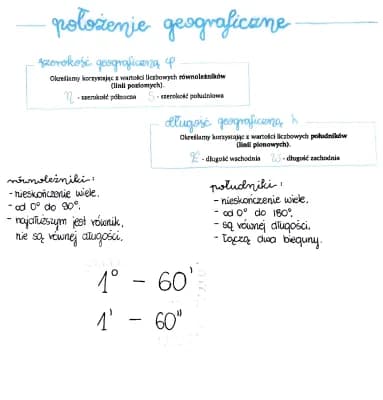 położenie geograficzne
szerokość geograficzna φ
Określamy korzystając z wartości liczbowych równoleżników
(linii poziomych).
N - szerokość północna S - szerokość południowa
długość geograficzna λ
Określamy korzystając z wartości liczbowych południków
(linii pionowych).
E - długość wschodnia W - długość zachodnia
równoleżniki:
- nieskończenie wiele,
- od 0° do 90°,
- najdłuższym jest równik,
nie są równej długości,
południki:
- nieskończenie wiele,
- od 0° do 180°,
- są równej długości,
- łączą dwa bieguny.
1° - 60'
1' - 60"